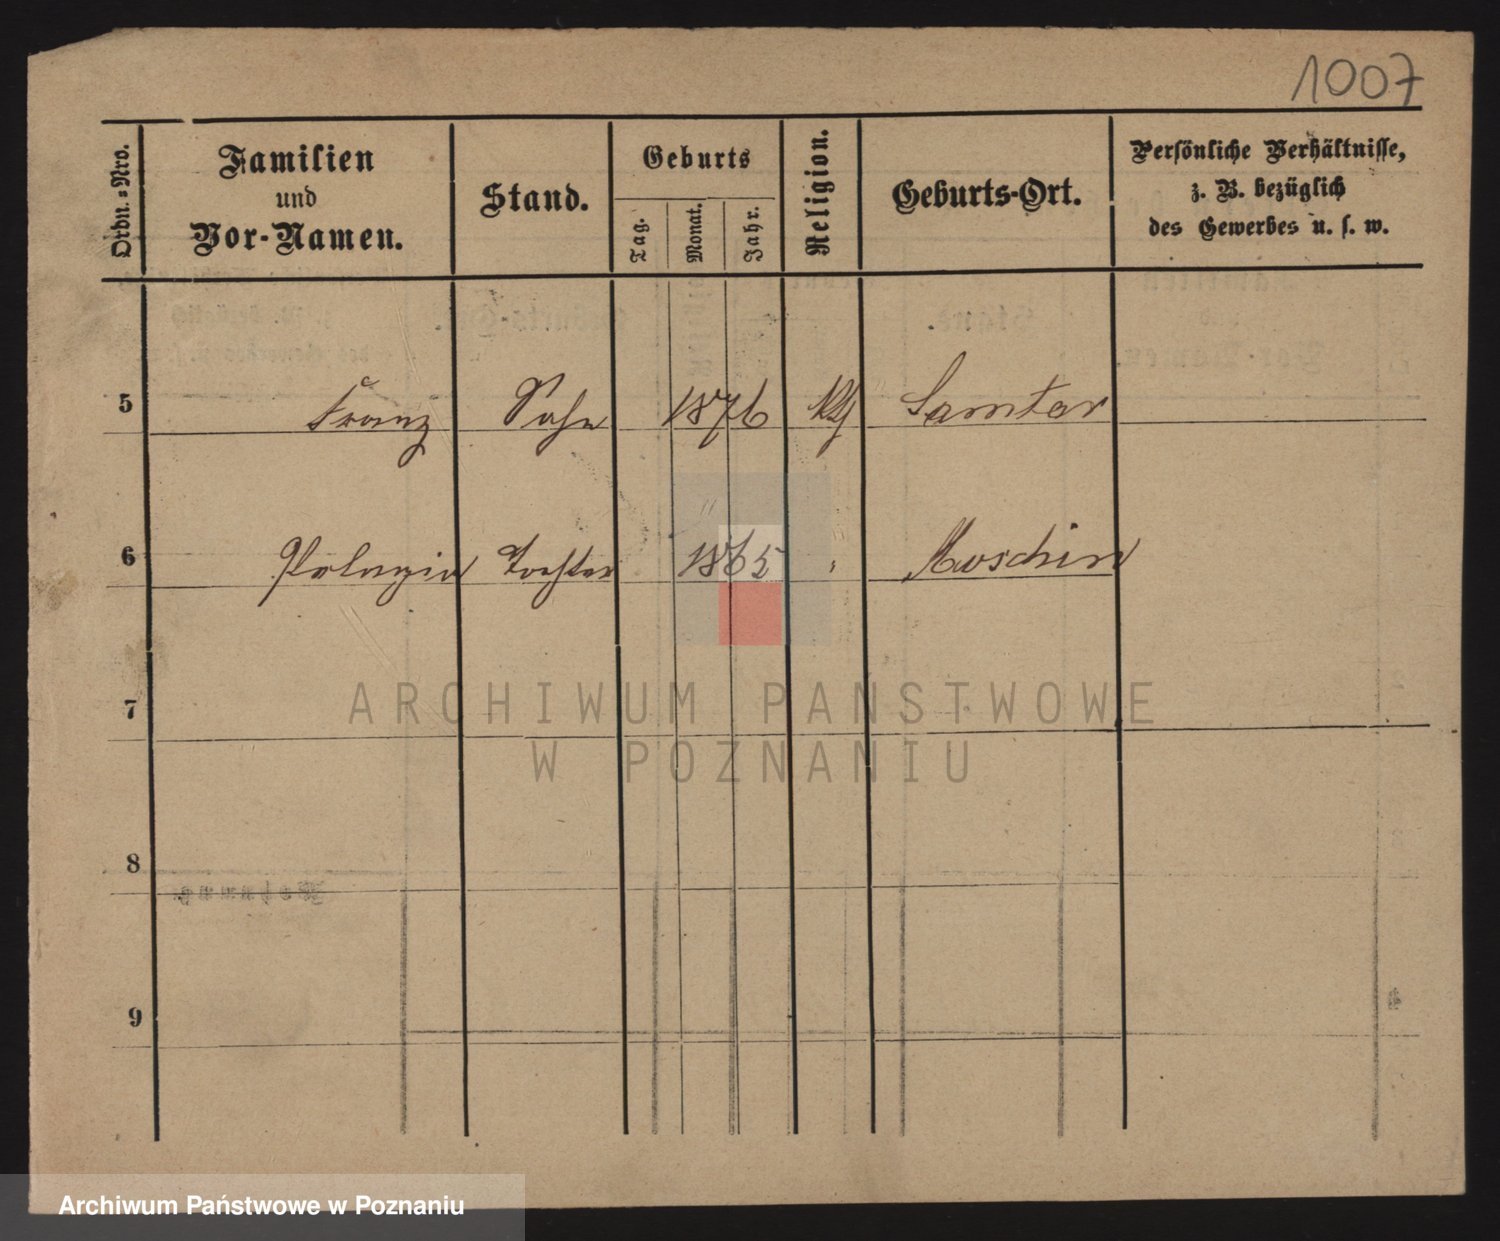 1007
Ordn.=Nro.
Familien
und
Vor-Namen.
Stand.
Geburts
Tag.
Monat.
Jahr.
Religion.
Geburts-Ort.
Persönliche Verhältnisse,
z. B. bezüglich
des Gewerbes u. s. w.
5 Franz Sohn 1876 Samter
6 Pelagia Tochter 1865 " Moschin
7
ARCHIWUM PAŃSTWOWE
W POZNANIU
8
Wohnung.
9
Archiwum Państwowe w Poznaniu